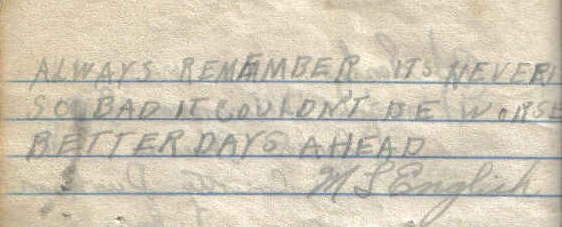 ALWAYS REMEMBER ITS NEVER
SO BAD IT COULDN'T BE WORSE
BETTER DAYS AHEAD
M L English